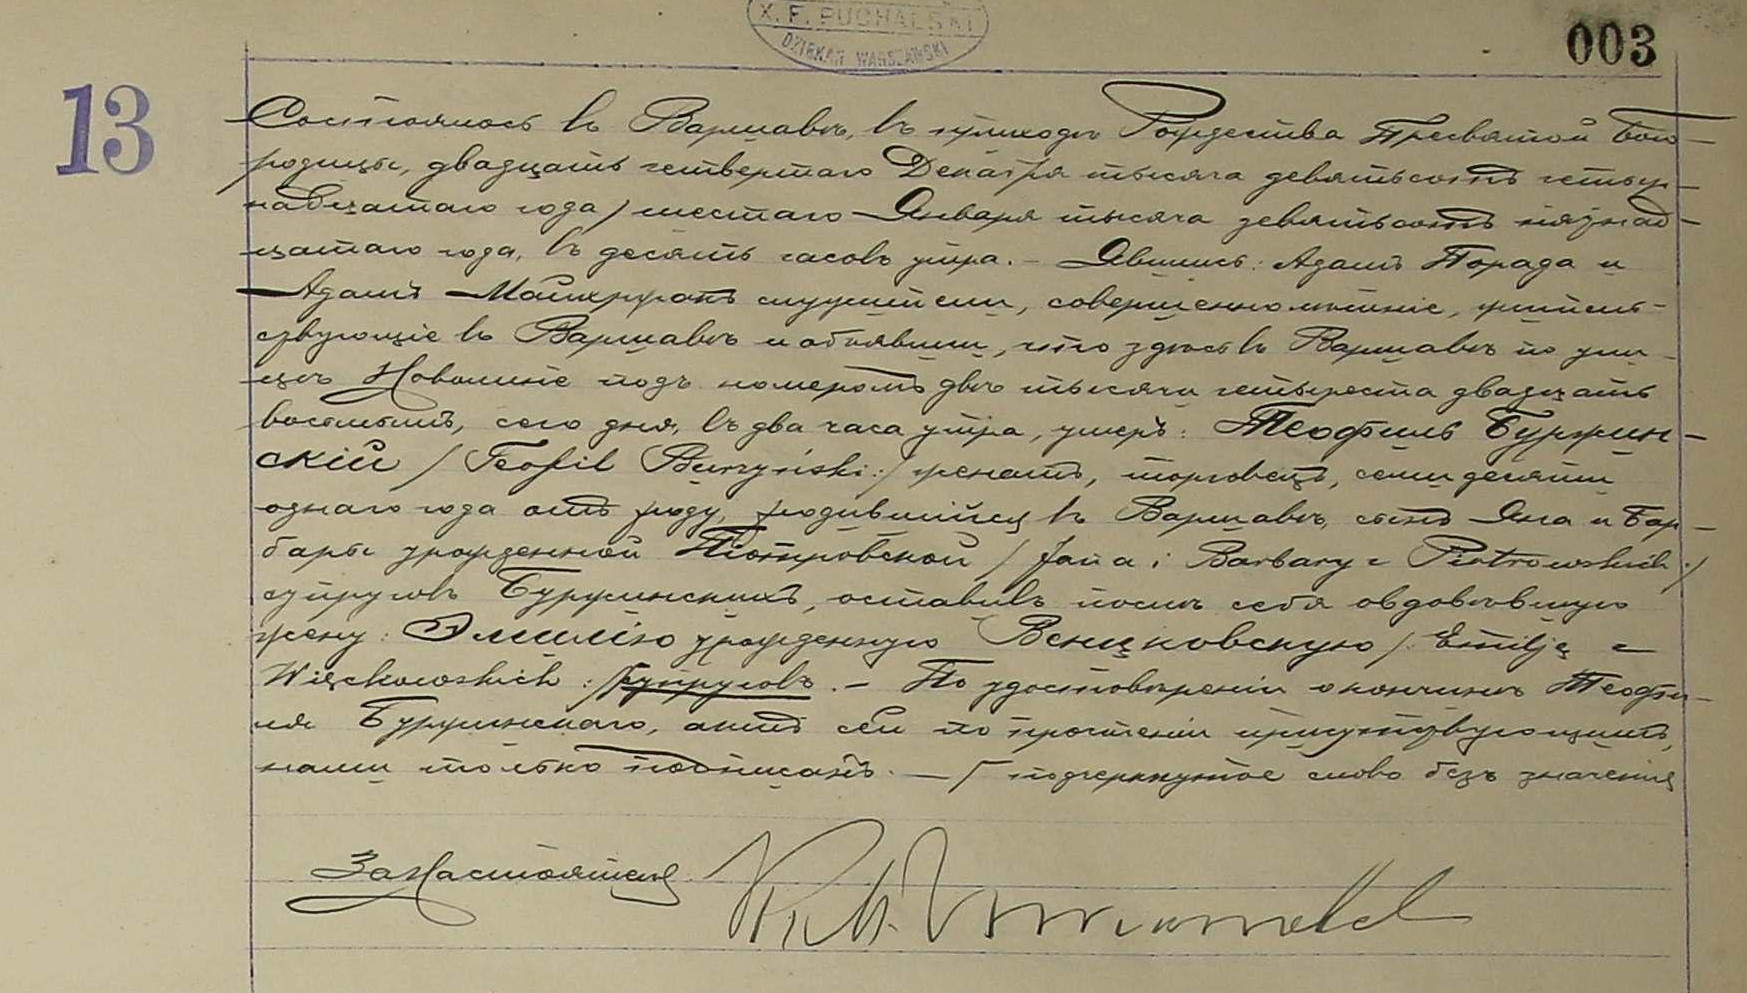 X. F. PUCHALSKI
DZIEKAN WARSZAWSKI
003
13
Состоялось въ Варшавѣ, въ приходѣ Рождества Пресвятой Бого-
родицы, двадцать четвертаго Декабря тысяча девятьсотъ четыр-
надцатаго года / шестаго Января тысяча девятьсотъ пятнад-
цатаго года, въ десять часовъ утра. – Явились: Адамъ Порада и
Адамъ служители, совершеннолѣтніе, жительст-
звующіе въ Варшавѣ и объявили, что здѣсь въ Варшавѣ по ули-
цѣ Новолипіе подъ номеромъ двѣ тысячи четыреста двадцать
восьмымъ, сего дня, въ два часа утра, умеръ: Теофиль Буржин-
скій / Teofil Burzyński :/ женатъ, торговецъ, семидесяти
однаго года отъ роду, родившійся въ Варшавѣ, сынъ Яна и Бар-
бары урожденной Піотровской / Jana i Barbary z Piotrowskich /
супруговъ Буржинскихъ, оставивъ послѣ себя овдовѣвшую
жену: Эмилію урожденную Венцковскую /: Emilję z
Więckowskich :/ супруговъ. – По удостовѣреніи о кончинѣ Теофи-
ля Буржинскаго, актъ сей по прочтеніи присутствующимъ,
нами только подписанъ. – / подчеркнутое слово безъ значенія
За Настоятеля